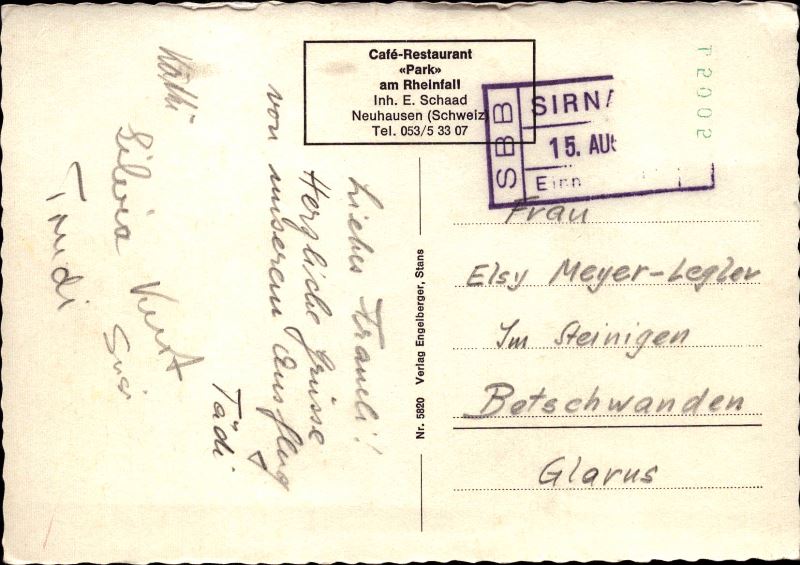 Café-Restaurant
«Park»
am Rheinfall
Inh. E. Schaad
Neuhausen (Schweiz)
Tel. 053/5 33 07
SBB
SIRNA
15. AUG
Einn
T2002
Liebes Trauli!
Herzliche Grüsse
von unserem Ausflug
Tädi
Kurt
Susi
Silvia
Käthi
Trudi
Nr. 5820 Verlag Engelberger, Stans
Frau
Elsy Meyer-Legler
Im Steinigen
Betschwanden
Glarus